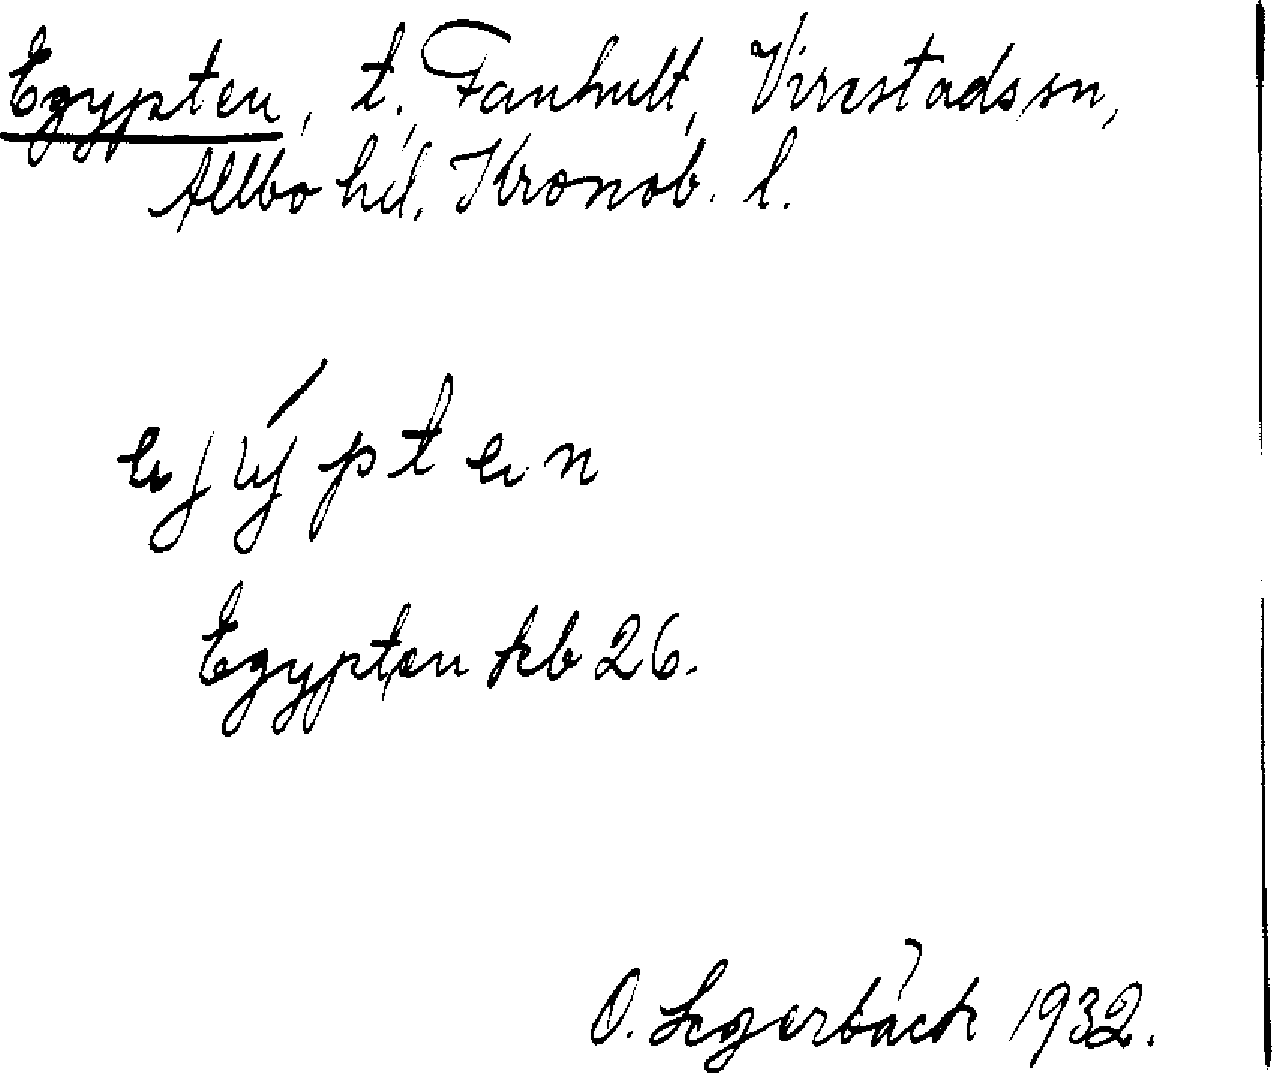 Egypten, t. Fanhult, Virestads sn,
Allbo hd. Kronob. l.
ejýpten
Egypten kb 26.
O. Segerbäck 1932.